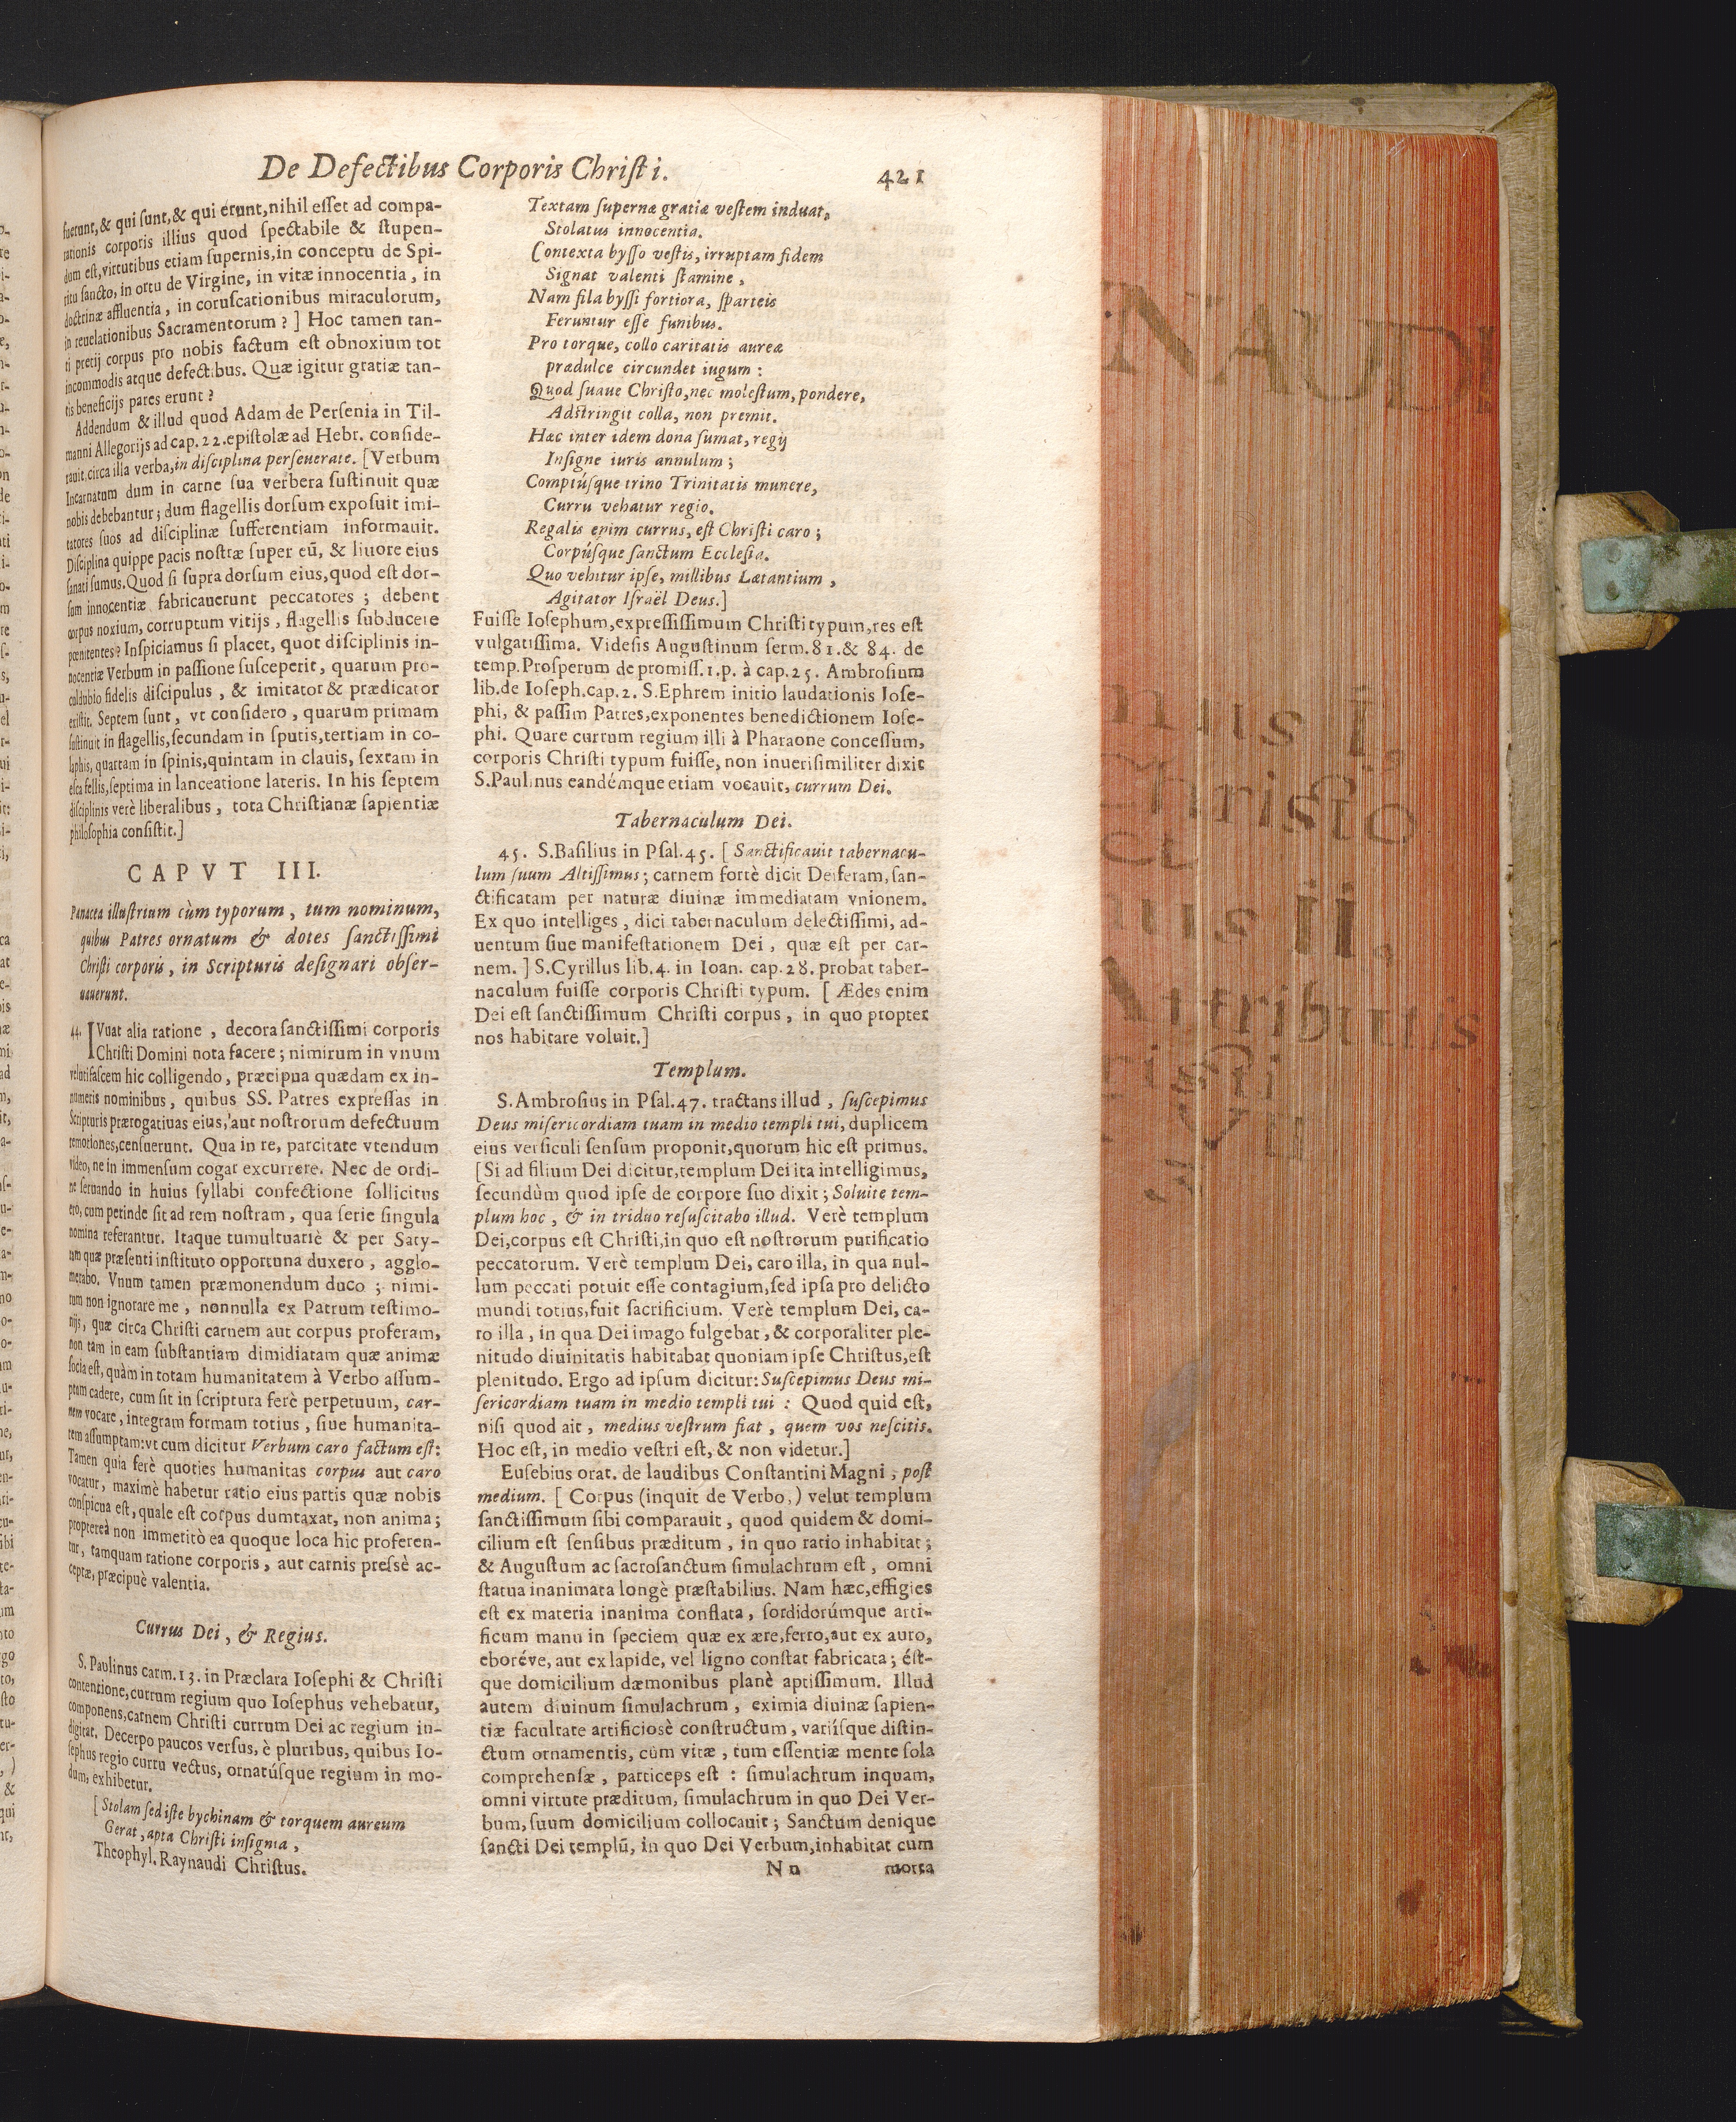 De Defectibus Corporis Chriſti.
421
fuerunt, & qui ſunt, & qui erunt, nihil eſſet ad compa-
rationis corporis illius quod ſpectabile & ſtupen-
dum eſt, virtutibus etiam ſupernis, in conceptu de Spi-
ritu ſancto, in ortu de Virgine, in vitæ innocentia, in
doctrinæ affluentia, in coruſcationibus miraculorum,
in reuelationibus Sacramentorum? ] Hoc tamen tan-
ti pretij corpus pro nobis factum eſt obnoxium tot
incommodis atque defectibus. Quæ igitur gratiæ tan-
tis beneficijs pares erunt?
Addendum & illud quod Adam de Perſenia in Til-
manni Allegorijs ad cap. 22. epiſtolæ ad Hebr. conſide-
rauit, circa illa verba, in diſciplina perſeuerate. [Verbum
Incarnatum dum in carne ſua verbera ſuſtinuit quæ
nobis debebantur; dum flagellis dorſum expoſuit imi-
tatores ſuos ad diſciplinæ ſufferentiam informauit.
Diſciplina quippe pacis noſtræ ſuper eũ, & liuore eius
ſanati ſumus. Quod ſi ſupra dorſum eius, quod eſt dor-
ſum innocentiæ fabricauerunt peccatores; debent
corpus noxium, corruptum vitijs, flagellis ſubducere
pœnitentes? Inſpiciamus ſi placet, quot diſciplinis in-
nocentiæ Verbum in paſſione ſuſceperit, quarum pro-
culdubio fidelis diſcipulus, & imitator & prædicator
extitit. Septem ſunt, vt conſidero, quarum primam
ſuſtinuit in flagellis, ſecundam in ſputis, tertiam in co-
laphis, quartam in ſpinis, quintam in clauis, ſextam in
eſca fellis, ſeptima in lanceatione lateris. In his ſeptem
diſciplinis verè liberalibus, tota Chriſtianæ ſapientiæ
philoſophia conſiſtit.]
CAPVT III.
Panacea illuſtrium cùm typorum, tum nominum,
quibus Patres ornatum & dotes ſanctiſſimi
Chriſti corporis, in Scripturis deſignari obſer-
uauerunt.
44. IVuat alia ratione, decora ſanctiſſimi corporis
Chriſti Domini nota facere; nimirum in vnum
velutifaſcem hic colligendo, præcipua quædam ex in-
numeris nominibus, quibus SS. Patres expreſſas in
Scripturis prærogatiuas eius, aut noſtrorum defectuum
remotiones, cenſuerunt. Qua in re, parcitate vtendum
video, ne in immenſum cogar excurrere. Nec de ordi-
ne ſeruando in huius ſyllabi confectione ſollicitus
ero, cum perinde ſit ad rem noſtram, qua ſerie ſingula
nomina referantur. Itaque tumultuariè & per Saty-
ram quæ præſenti inſtituto opportuna duxero, agglo-
merabo. Vnum tamen præmonendum duco; nimi-
rum non ignorare me, nonnulla ex Patrum teſtimo-
nijs, quæ circa Chriſti carnem aut corpus proferam,
non tam in eam ſubſtantiam dimidiatam quæ animæ
ſocia eſt, quàm in totam humanitatem à Verbo aſſum-
ptam cadere, cum ſit in ſcriptura ferè perpetuum, car-
nem vocare, integram formam totius, ſiue humanita-
tem aſſumptam: vt cum dicitur Verbum caro factum eſt:
Tamen quia ferè quoties humanitas corpus aut caro
vocatur, maximè habetur ratio eius partis quæ nobis
conſpicua eſt, quale eſt corpus dumtaxat, non anima;
propterea non immeritò ea quoque loca hic proferen-
tur, tamquam ratione corporis, aut carnis preſsè ac-
ceptæ, præcipuè valentia.
Currus Dei, & Regius.
S. Paulinus carm. 13. in Præclara Ioſephi & Chriſti
contentione, currum regium quo Ioſephus vehebatur,
componens, carnem Chriſti currum Dei ac regium in-
digitat. Decerpo paucos verſus, è pluribus, quibus Io-
ſephus regio curru vectus, ornatúſque regium in mo-
dum, exhibetur.
[ Stolam ſed iſte bychinam & torquem aureum
Gerat, apta Chriſti inſignia,
Theophyl. Raynaudi Chriſtus.
Textam ſupernæ gratiæ veſtem induat,
Stolatus innocentia.
Contexta byſſo veſtis, irruptam fidem
Signat valenti ſtamine,
Nam fila byſſi fortiora, ſparteis
Feruntur eſſe funibus.
Pro torque, collo caritatis aureæ
prædulce circundet iugum:
Quod ſuaue Chriſto, nec moleſtum, pondere,
Adſtringit colla, non premit.
Hæc inter idem dona ſumat, regij
Inſigne iuris annulum;
Comptúſque trino Trinitatis munere,
Curru vehatur regio.
Regalis enim currus, eſt Chriſti caro;
Corpúſque ſanctum Eccleſia.
Quo vehitur ipſe, millibus Lætantium,
Agitator Iſraël Deus.]
Fuiſſe Ioſephum, expreſſiſſimum Chriſti typum, res eſt
vulgatiſſima. Videſis Auguſtinum ſerm. 81. & 84. de
temp. Proſperum de promiſſ. 1. p. à cap. 25. Ambroſium
lib. de Ioſeph. cap. 2. S. Ephrem initio laudationis Ioſe-
phi, & paſſim Patres, exponentes benedictionem Ioſe-
phi. Quare currum regium illi à Pharaone conceſſum,
corporis Chriſti typum fuiſſe, non inueriſimiliter dixit
S. Paulinus eandémque etiam vocauit, currum Dei.
Tabernaculum Dei.
45. S. Baſilius in Pſal. 45. [ Sanctificauit tabernacu-
lum ſuum Altiſſimus; carnem fortè dicit Deiferam, ſan-
ctificatam per naturæ diuinæ immediatam vnionem.
Ex quo intelliges, dici tabernaculum delectiſſimi, ad-
uentum ſiue manifeſtationem Dei, quæ eſt per car-
nem. ] S. Cyrillus lib. 4. in Ioan. cap. 28. probat taber-
naculum fuiſſe corporis Chriſti typum. [ Ædes enim
Dei eſt ſanctiſſimum Chriſti corpus, in quo propter
nos habitare voluit.]
Templum.
S. Ambroſius in Pſal. 47. tractans illud, ſuſcepimus
Deus miſericordiam tuam in medio templi tui, duplicem
eius verſiculi ſenſum proponit, quorum hic eſt primus.
[Si ad filium Dei dicitur, templum Dei ita intelligimus,
ſecundùm quod ipſe de corpore ſuo dixit; Soluite tem-
plum hoc, & in triduo reſuſcitabo illud. Verè templum
Dei, corpus eſt Chriſti, in quo eſt noſtrorum purificatio
peccatorum. Verè templum Dei, caro illa, in qua nul-
lum peccati potuit eſſe contagium, ſed ipſa pro delicto
mundi totius, fuit ſacrificium. Verè templum Dei, ca-
ro illa, in qua Dei imago fulgebat, & corporaliter ple-
nitudo diuinitatis habitabat quoniam ipſe Chriſtus, eſt
plenitudo. Ergo ad ipſum dicitur: Suſcepimus Deus mi-
ſericordiam tuam in medio templi tui: Quod quid eſt,
niſi quod ait, medius veſtrum ſtat, quem vos neſcitis.
Hoc eſt, in medio veſtri eſt, & non videtur.]
Euſebius orat. de laudibus Conſtantini Magni, poſt
medium. [ Corpus (inquit de Verbo,) velut templum
ſanctiſſimum ſibi comparauit, quod quidem & domi-
cilium eſt ſenſibus præditum, in quo ratio inhabitat;
& Auguſtum ac ſacroſanctum ſimulachrum eſt, omni
ſtatua inanimata longè præſtabilius. Nam hæc, effigies
eſt ex materia inanima conflata, ſordidorúmque arti-
ficum manu in ſpeciem quæ ex ære, ferro, aut ex auro,
eboréve, aut ex lapide, vel ligno conſtat fabricata; éſt-
que domicilium dæmonibus planè aptiſſimum. Illud
autem diuinum ſimulachrum, eximia diuinæ ſapien-
tiæ facultate artificiosè conſtructum, variíſque diſtin-
ctum ornamentis, cùm vitæ, tum eſſentiæ mente ſola
comprehenſæ, particeps eſt: ſimulachrum inquam,
omni virtute præditum, ſimulachrum in quo Dei Ver-
bum, ſuum domicilium collocauit; Sanctum denique
ſancti Dei templũ, in quo Dei Verbum, inhabitat cum
Nn
morta
NAUDI
mus I.
Christo
us II.
Attributus